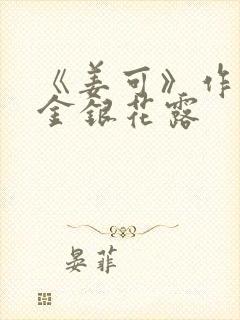 《姜可》作
金银花露
晏菲